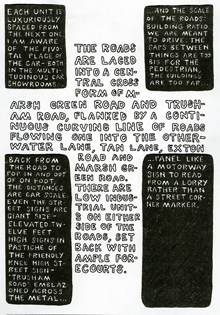 EACH UNIT IS
LUXURIOUSLY
SPACED
FROM THE NEXT ONE.
I AM AWARE
OF THE PIV-
OTAL PLACE OF
THE CAR - BOTH
IN THE MULTI-
TUDINOUS CAR
SHOWROOMS,
...AND THE SCALE
OF THE ROADS:
BUILDING RATIO.
WE ARE MEANT
TO DRIVE. THE
GAPS BETWEEN
THINGS ARE TOO
BIG FOR THE
PEDESTRIAN,
THE BUILDINGS
ARE TOO FAR
THE ROADS
ARE LACED
INTO A CEN-
TRAL CROSS
FORM OF M-
ARSH GREEN ROAD AND TRUSH-
AM ROAD, FLANKED BY A CONTI-
NUOUS CURVING LINE OF ROADS
FLOWING ONE INTO THE OTHER-
WATER LANE, TAN LANE, EXTON
ROAD AND
MARSH GR-
EEN ROAD.
THERE ARE
LOW INDUS-
TRIAL UNIT-
S ON EITHER
SIDE OF THE
ROADS, SET
BACK WITH
AMPLE FOR-
ECOURTS.
BACK FROM
THE ROAD TO
POP IN AND OUT
OF ON FOOT,
THE DISTANCES
ARE CAR SCALE.
EVEN THE STR-
EET SIGNS ARE
GIANT SIZE-
ELEVATED TW-
ELVE FEET
HIGH SIGNS IN
PASTICHE OF
THE FRIENDLY
KNEE HIGH ST-
REET SIGN-
'TRUSHAM
ROAD' EMBLAZ-
ONED ACROSS
THE METAL...
...PANEL LIKE
A MOTORWAY
SIGN TO READ
FROM A LORRY
RATHER THAN
A STREET COR-
NER MARKER.